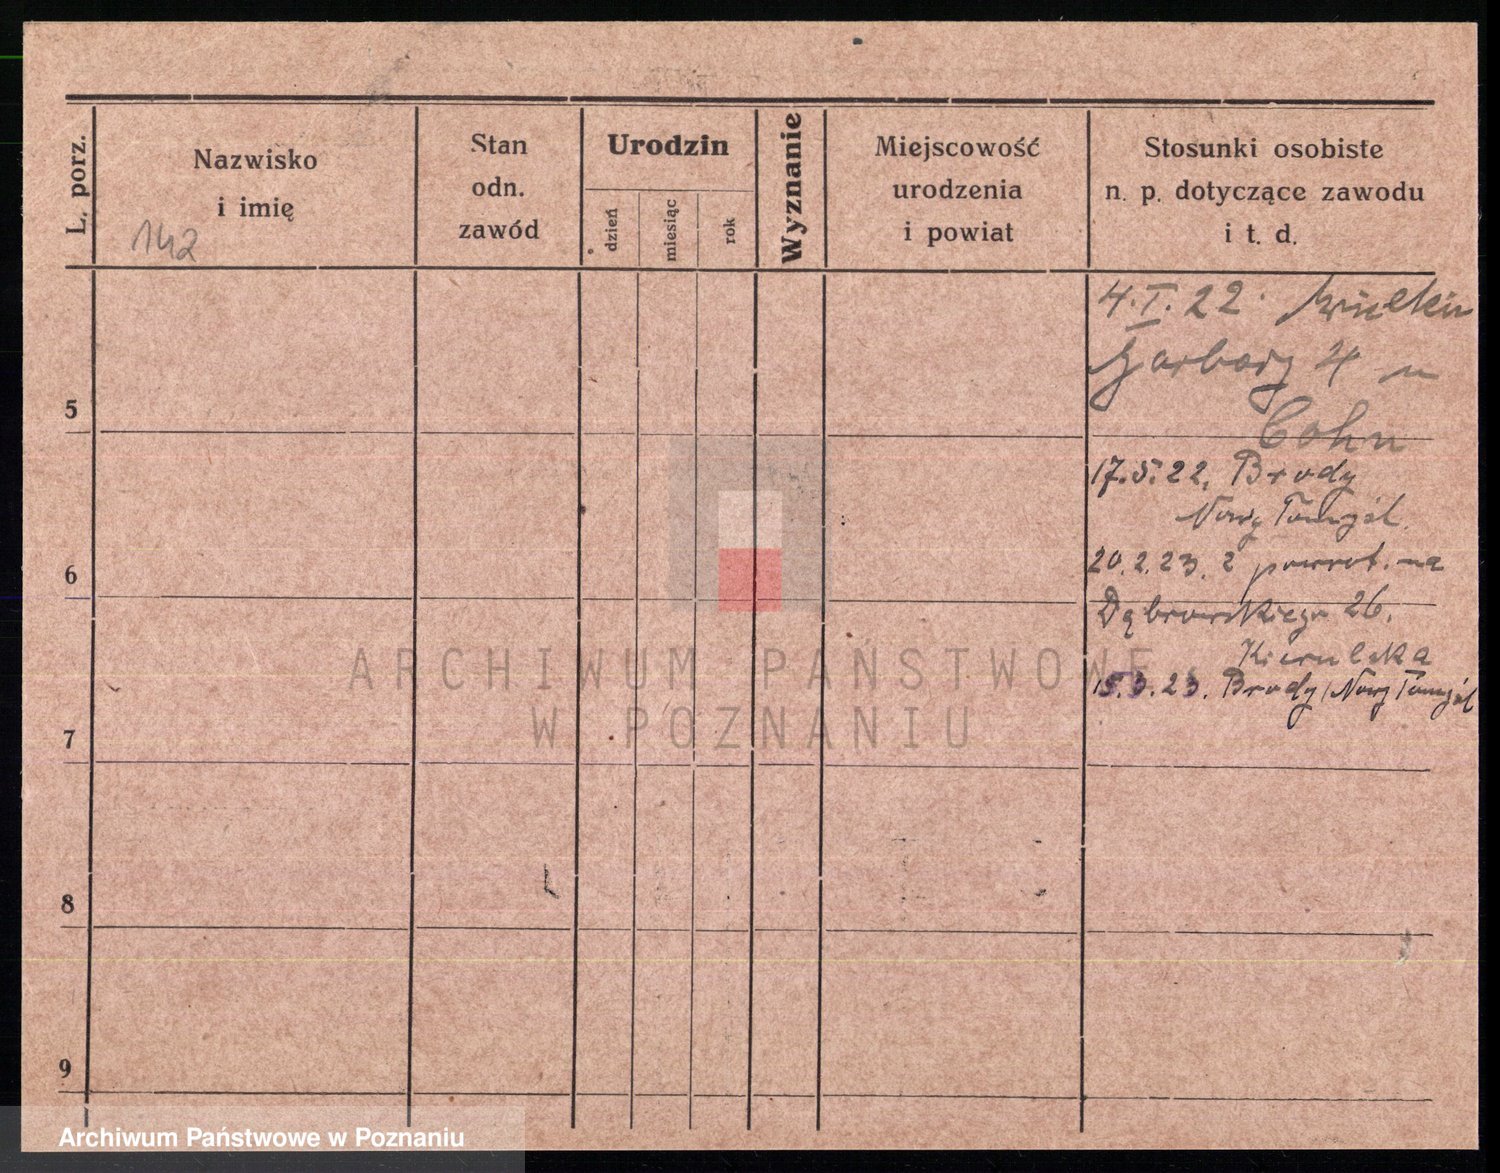 L. porz.
Nazwisko
i imię
142
Stan
odn.
zawód
Urodzin
dzień
miesiąc
rok
Wyznanie
Miejscowość
urodzenia
i powiat
Stosunki osobiste
n. p. dotyczące zawodu
i t. d.
4.I.22.
Garbary 4 u
Cohn
17.5.22. Brody
Nowy Tomyśl.
20.2.23. z powrot. na
Dąbrowskiego 26.
15.3.23. Brody/Nowy Tomyśl
5
6
7
8
9
ARCHIWUM PAŃSTWOWE
W POZNANIU
Archiwum Państwowe w Poznaniu